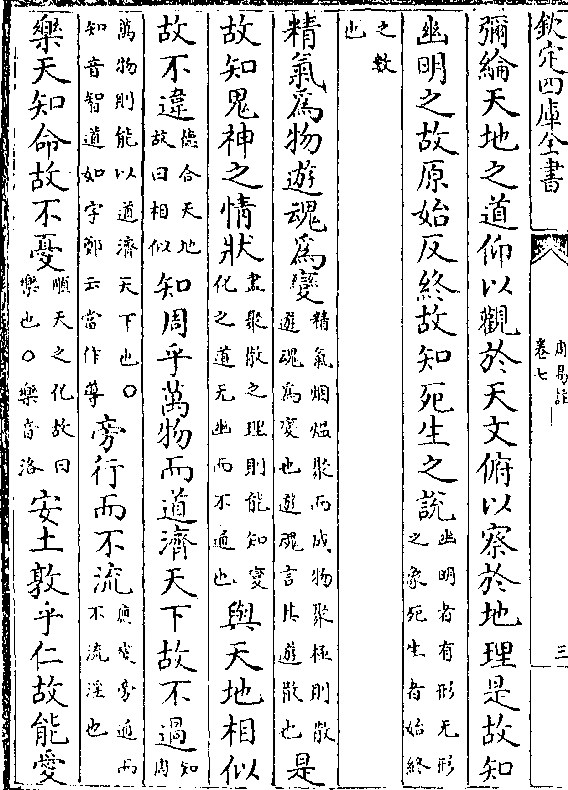 欽定四庫全書 周易註 卷七 三
彌綸天地之道仰以觀於天文俯以察於地理是故知
幽明之故原始反終故知死生之說幽明者有形无形之象死生者始終
之數也
精氣爲物遊魂爲變精氣烟熅聚而成物聚極則散遊魂爲變也遊魂言其遊散也是
故知鬼神之情狀盡聚散之理則能知變化之道无幽而不通也與天地相似
故不違德合天地故曰相似知周乎萬物而道濟天下故不過知周
萬物則能以道濟天下也○知音智道如字鄭云當作導旁行而不流應變旁通而不流淫也
樂天知命故不憂順天之化故曰樂也○樂音洛安土敦乎仁故能愛